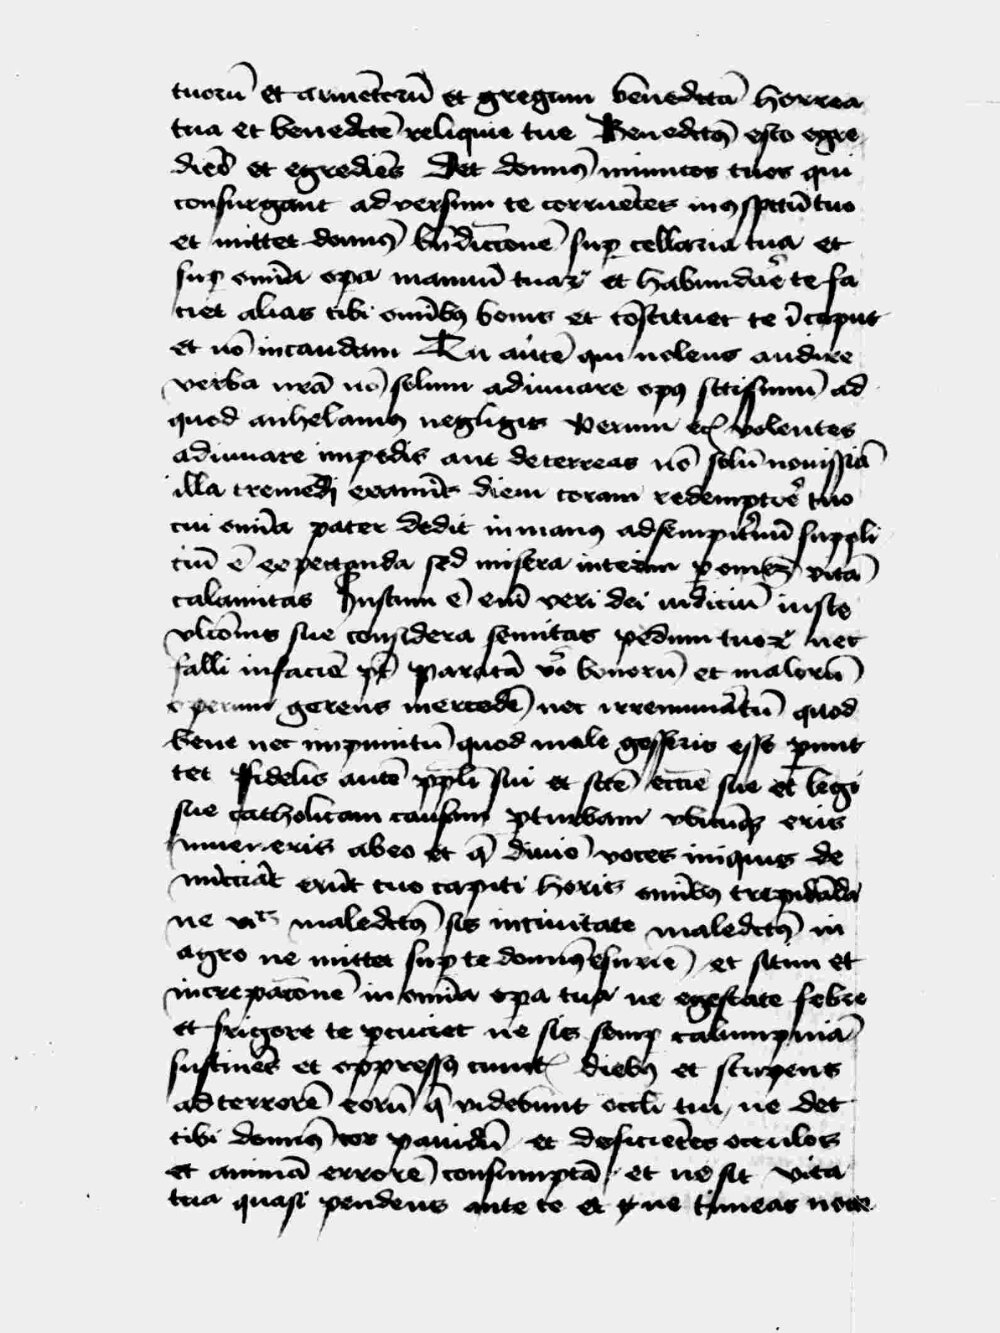 tuorū et armētorū et gregum benedcta horrea
tua et benedcte reliquie tue Benedctꝯ esto egre
diēs et egrediēs Det domnꝯ inimicos tuos qui
consurgant adversum te corruētes in ꝯspectū tuo
et mittet domnꝯ bn̄diccionē suꝑ cellaria tua et
suꝑ om̄ia opa manuū tuaꝝ et habundare te fa
ciet alias tibi om̄ibꝰ bonis et cōstituet te ī caput
et nō incaudam Tu autē qui nolens audire
verba nr̄a nō solum adiuuare opꝰ sctissimū ad
quod anhelamꝰ negligis Verum ecꝫ volentes
adiuuare impedis aut deterreas nō solū nouissia
illa tremēdi examīs diem coram redemptore tuo
cui om̄ia pater dedit inmanꝰ adsempit̄nū suppli
ciū ē expectanda sed misera interim ꝑ omēꝫ vitā
calamitas Iustum ē em̄ veri dei iudiciū iuste
vlcōnis sue considera semitas pedum tuoꝝ nec
falli infaciē pt̄ Paratā vo bonorū et malorū
operum gerens mercedē nec irremunatū quod
bene nec impunitū quod male gesseris esse ꝑmit
tet Fidelis autē ppli sui et scte eccīe sue et legi
sue catholicam causam ꝑturbam vbicūqꝫ eris
inueneris abeo et q̄ diuio voces iniquis de
nūcciāt erūt tuo capiti horis om̄ibꝰ trepidāda
ne maledctꝯ sis inciuitate maledctꝯ in
agro ne mittet suꝑ te domnꝯ esuriē et sitim et
increpacōnē in om̄ia opa tua ne egestate febre
et frigore te ꝑcuciet ne sis semꝑ calumpniā
sustinēs et oppressꝰ cunct diebꝰ et stupens
ad terrorē eorū q̄ videbunt occli tui ne det
tibi domnꝯ cor pauidū et deficiētes occulos
et animā errorē consumptā et ne sit vita
tua quasi pendens ante te et ne timeas nocte